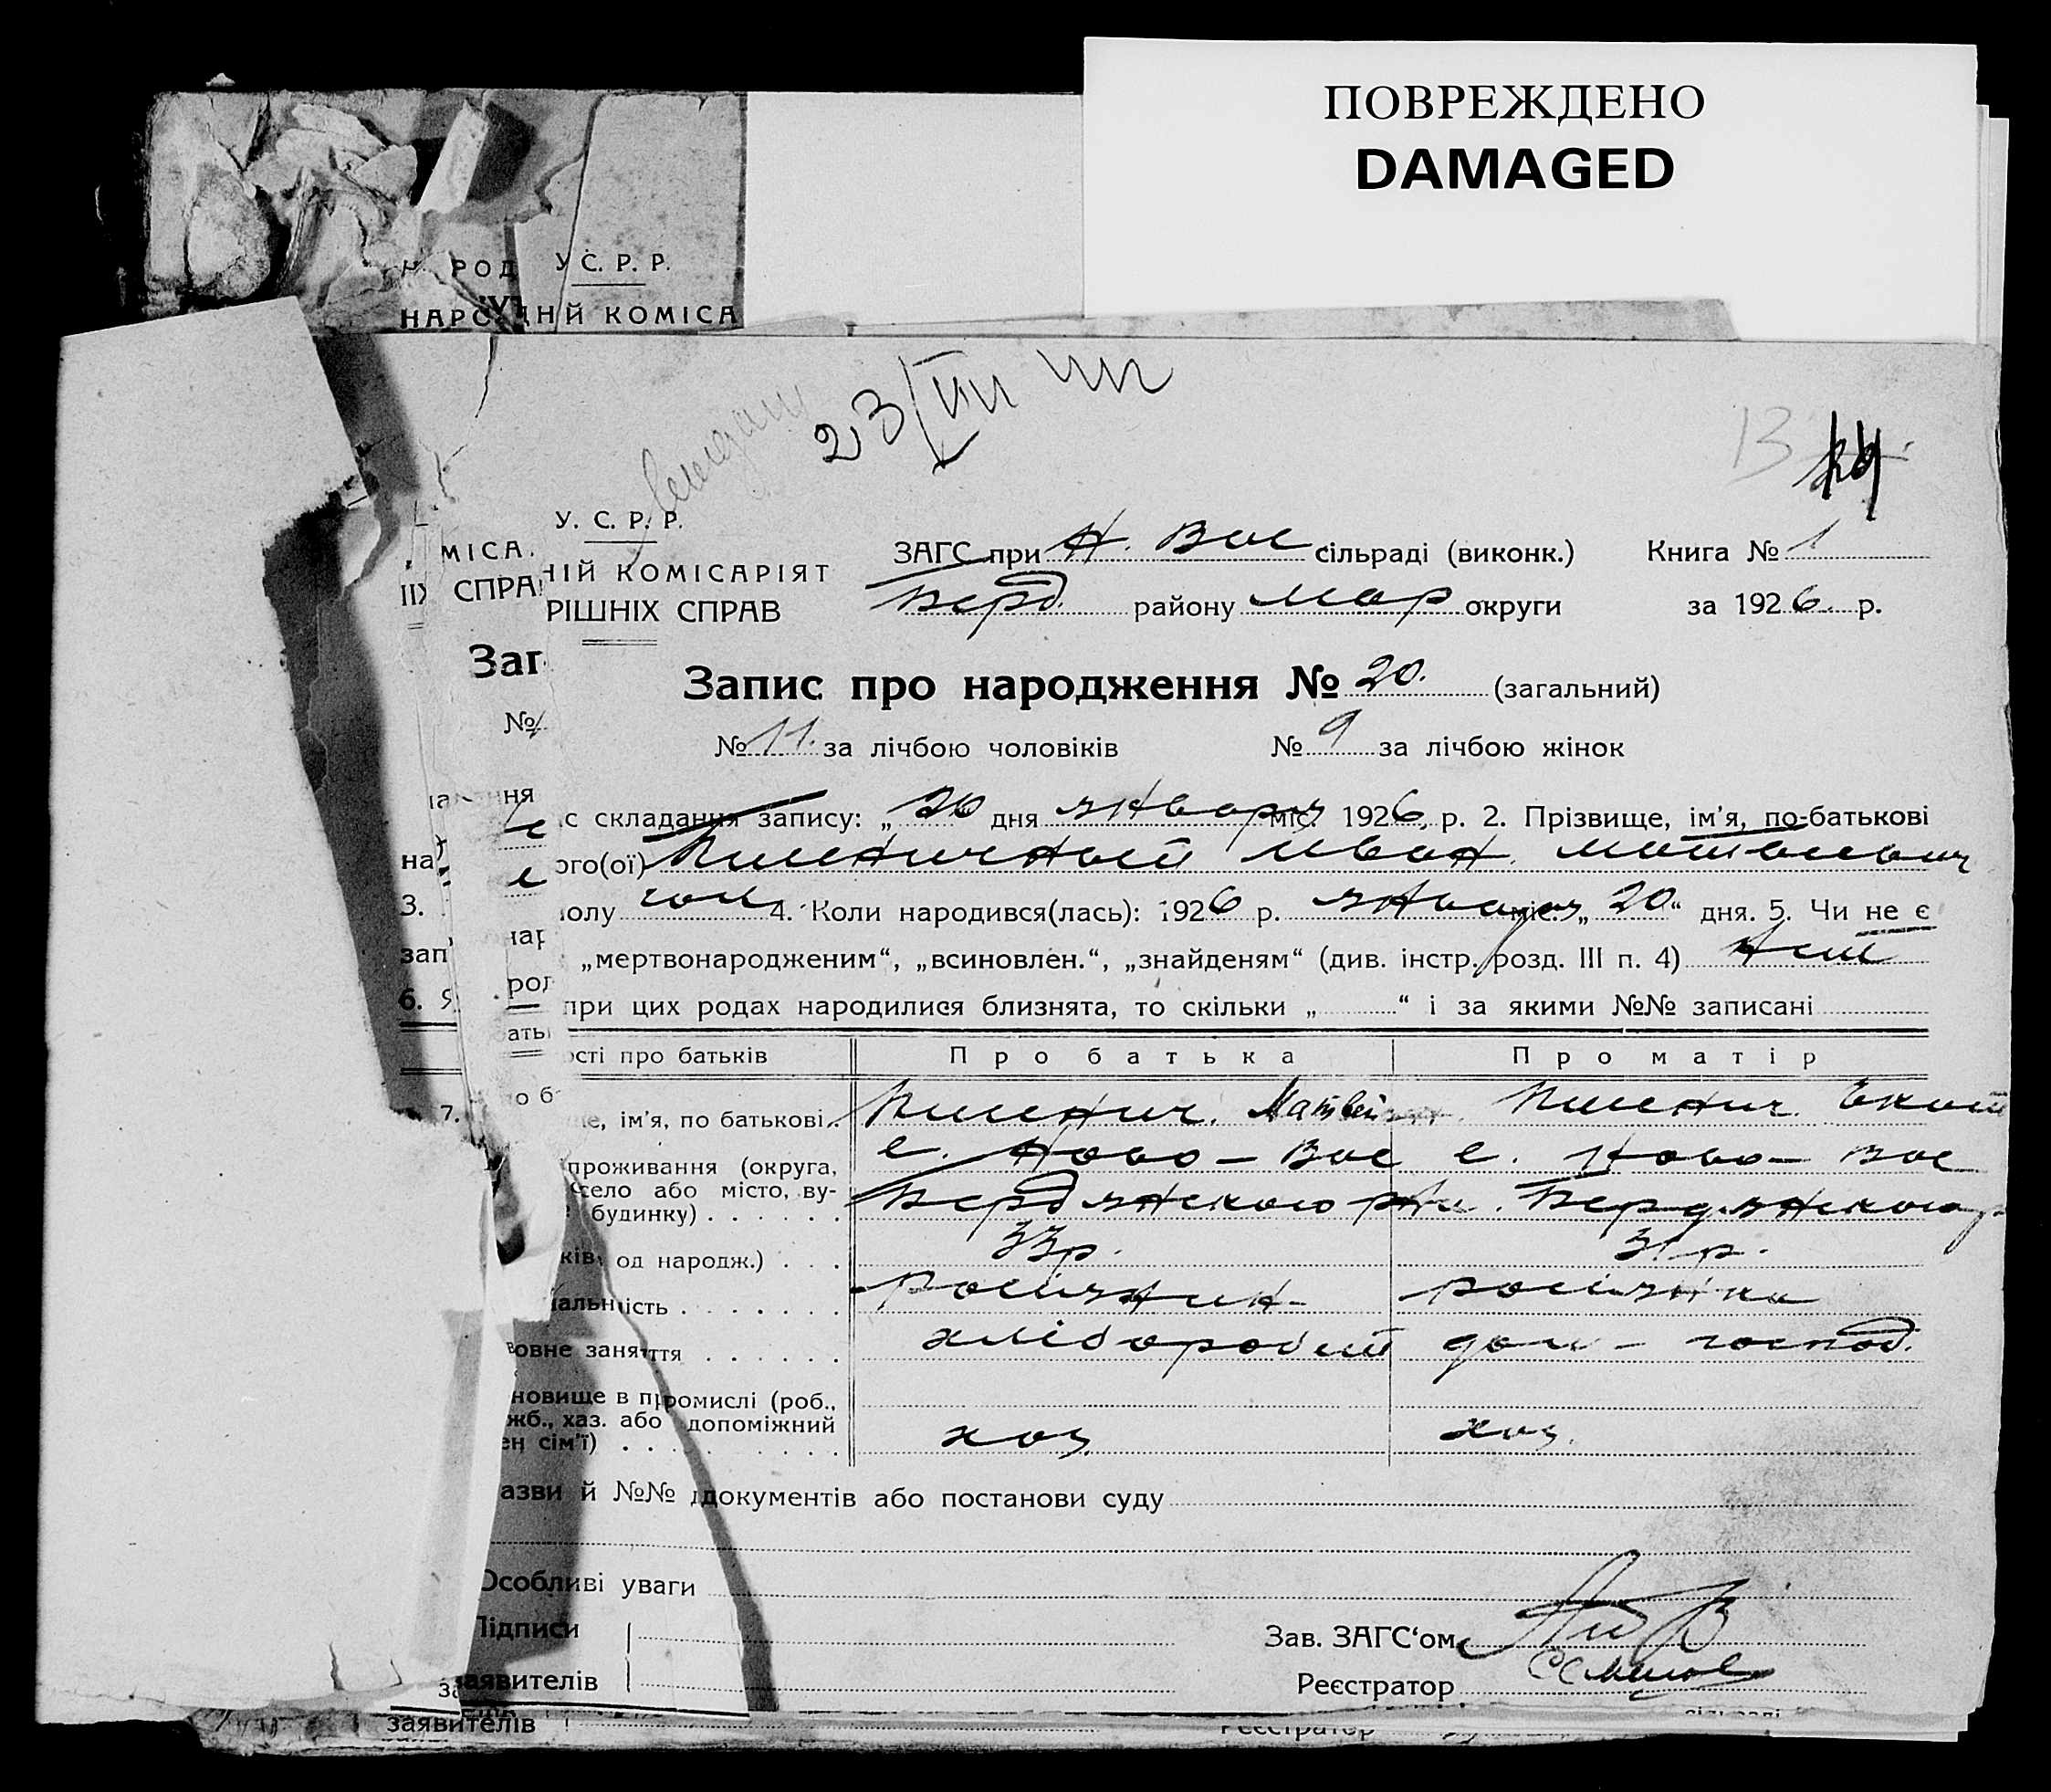 ПОВРЕЖДЕНО
DAMAGED
У С. Р. Р.
НАРОДНІЙ КОМІСА
23/VIII
13
У. С. Р. Р.
МІСА.
НІЙ КОМІСАРІЯТ
ІХ СПРА
РІШНІХ СПРАВ
ЗАГС при Н. Вас сільраді (виконк.) Книга № 1
Берд. району Мар округи за 1926. р.
Заг
Запис про народження № 20. (загальний)
№ 11. за лічбою чоловіків № 9 за лічбою жінок
с складання запису: „26 дня января міс. 1926, р. 2. Прізвище, ім'я, по-батькові
ого(ої) Пшеничный Иван
3. полу чол 4. Коли народився(лась): 1926 р. января міс. „20“ дня. 5. Чи не є
зап „мертвонародженим“, „всиновлен.“, „знайденям“ (див. інстр. розд. III п. 4) нет
6. Я при цих родах народилися близнята, то скільки „ “ і за якими №№ записані
ості про батьків Про батька Про матір
7. ще, ім'я, по батькові Пшенич. Матвей Пшенич. Екат
с. Ново-Вас с. Ново-Вас
проживання (округа,
село або місто, ву-
будинку) Бердянського р-ну. Бердянського р
ків од народж.) 33р. 31 р.
альність росіянин росіянка
овне заняття хлібороб дом-господ.
новище в промислі (роб.,
жб., хаз. або допоміжний
ен сім'ї) хоз. хоз.
азви й №№ документів або постанови суду
Особливі уваги
Підписи Зав. ЗАГС'ом
заявителів Реєстратор
заявителів Реєстратор сільраді